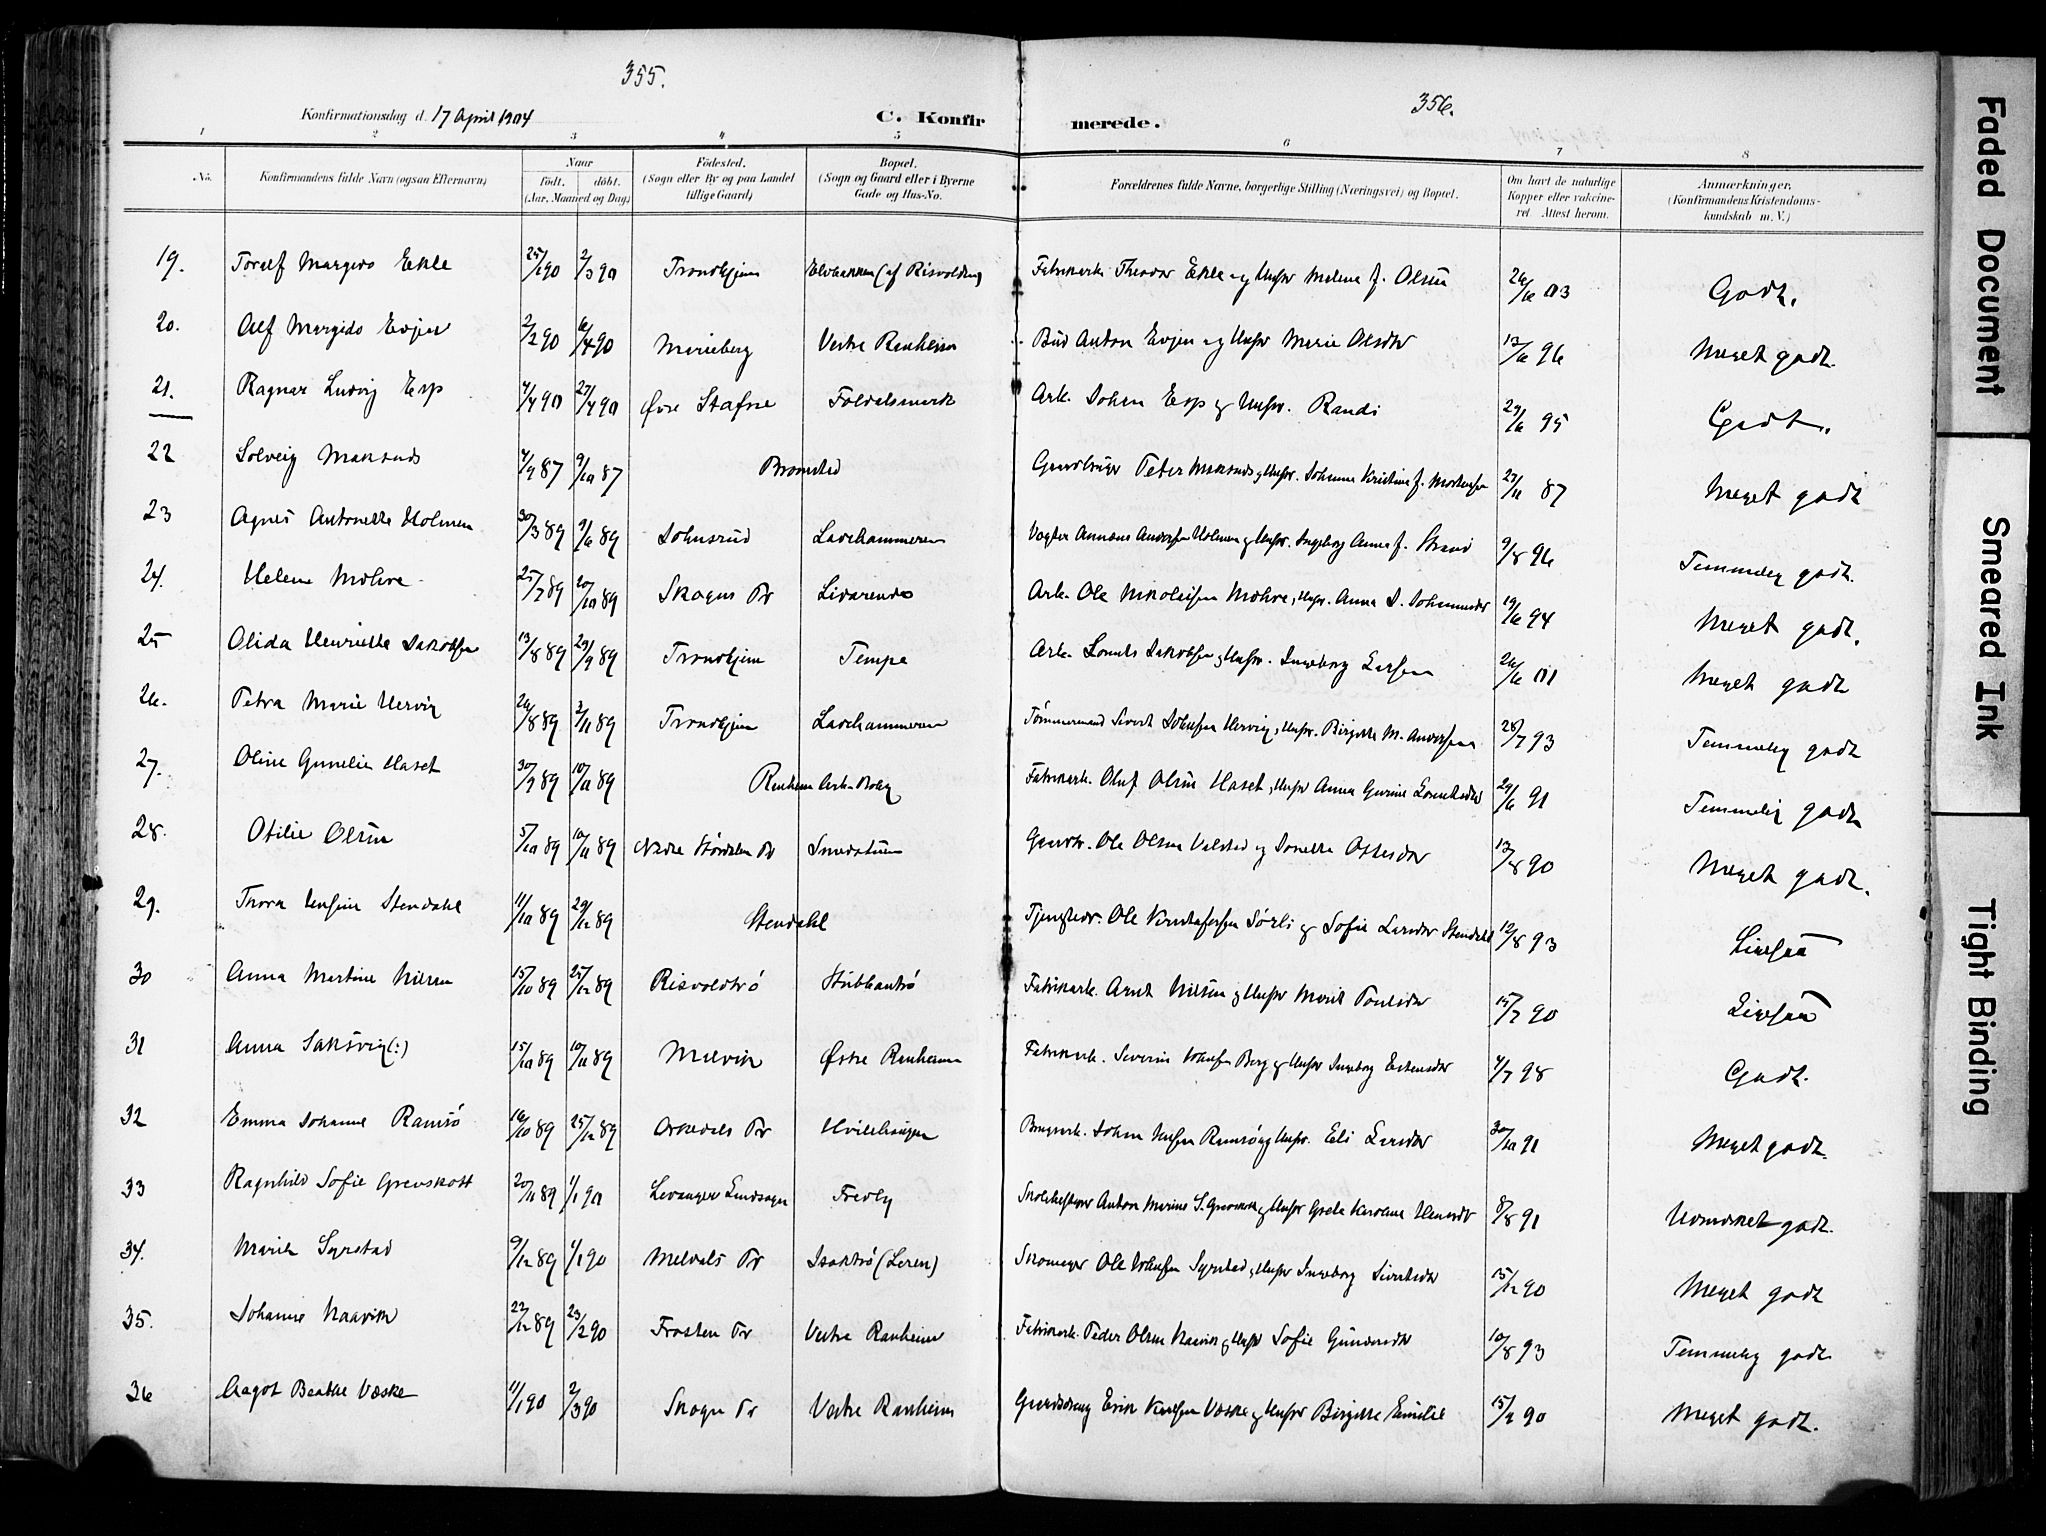 355.
356.
Konfirmationsdag d. 17 April 1904
C. Konfir
merede.
1 2 3 4 5 6 7 8
No. Konfirmandens fulde Navn (ogsaa Efternavn) Naar født. døbt. (Aar, Maaned og Dag) Fødested. (Sogn eller By og paa Landet tillige Gaard) Bopæl. (Sogn og Gaard eller i Byerne Gade og Hus-No. Forældrenes fulde Navne, borgerlige Stilling (Næringsvei) og Bopæl. Om havt de naturlige Kopper eller vakcineret. Attest herom. Anmærkninger. (Konfirmandens Kristendomskundskab m. V.)
19. Toralf Margido Ekle 25/1 90 2/3 90 Trondhjem Fabrikarb. Theodor Ekle og Hustr Milena f. Olsen 26/6 03 Godt.
20. Alf Margido Evjen 2/2 90 6/4 90 Marieberg Vestre Ranheim Anton Evjen og Hustr Marie Olsdtr 13/6 96 Meget godt.
21. Ragnar Ludvig Esp 4/4 90 27/4 90 Øvre Stafne Arb. Johan Esp og Hustr. Randi 29/6 95 Godt.
22 Solveig 4/9 87 9/10 87 Bromstad Gaardbruger Peter og Hustr. Johanna Kristine f. 23/11 87 Meget godt
23 Agnes Antonette Holmen 30/3 89 9/6 89 Johnsrud Ladehammeren Vogter Andersen Holmen og Hustr. Ingeborg Anna f. Strand 9/8 96 Temmelig godt.
24. Helene Mohre 25/7 89 20/10 89 Skogns Pr Arb. Ole Nikolaisen Mohre, Hustr. Anna 19/6 94 Meget godt.
25 Olida Henriette Jakobsen 13/8 89 29/9 89 Trondhjem Tempe Arb. Jakobsen og Hustr. Ingeborg Larsen 26/6 01 Meget godt
26. Petra Marie Hervig 26/8 89 3/11 89 Trondhjem Ladehammeren Tømmermand Sivert Johnsen Hervig, Hustr. Birgitte M. Andersen 28/7 93 Temmelig godt
27. Oline Gunelie Haset 30/9 89 10/11 89 Ranheim Arb-Bolig Fabrikarb. Oluf Olsen Haset, Hustr Anna Gurine 29/6 91 Temmelig godt
28. Otilie Olsen 5/10 89 10/11 89 Nedre Stördalen Pr Smedstuen Gaardbr. Ole Olsen Valstad og 13/8 90 Meget godt.
29. Thora Stendahl 11/10 89 29/12 89 Stendahl Ole Kristofersen Sörli og Sofie Larsdtr Stendahl 12/8 93 Ligesaa
30 Anna Martine Nilsen 15/10 89 25/12 89 Risvoldtrø Stubbantrø Fabrikarb. Arnt Nilsen og Hustr Marit Paulsdtr 15/7 90 Ligesaa
31 Anna Saksvig (:) 15/10 89 10/11 89 Malvik Østre Ranheim Fabrikarb. Severin Johnsen Berg og Hustr Ingeborg Estensdtr 4/7 98 Godt.
32 Emma Johanne Ramsö 16/10 89 25/12 89 Orkedals Pr Brugsarb. Johan Ramsö og Hustr. Eli Larsdtr 30/10 91 Meget godt.
33 Ragnhild Sofie Grevskott 20/11 89 1/1 90 Levanger Landsogn Fredly Anton Marius S. Grevskott og Hustr Grete Karoline 8/8 91 Udmærket godt.
34. Marit Syrstad 9/12 89 1/1 90 Meldals Pr Isaktrø (Leren) Skomager Ole Johnsen Syrstad, Hustr Ingeborg Sivertsdtr 15/12 90 Meget godt
35. Johanne Naavik 22/12 89 23/2 90 Frosten Pr Vestre Ranheim Fabrikarb. Peder Olsen Naavik og Hustr Sofie Gundersdtr 10/8 93 Temmelig godt
36 Aagot Beathe Væske 11/1 90 2/3 90 Skogn Pr Vestre Ranheim Erik Væske og Hustr Birgitte Emilie 15/2 90 Meget godt.
Faded Document
Smeared Ink
Tight Binding